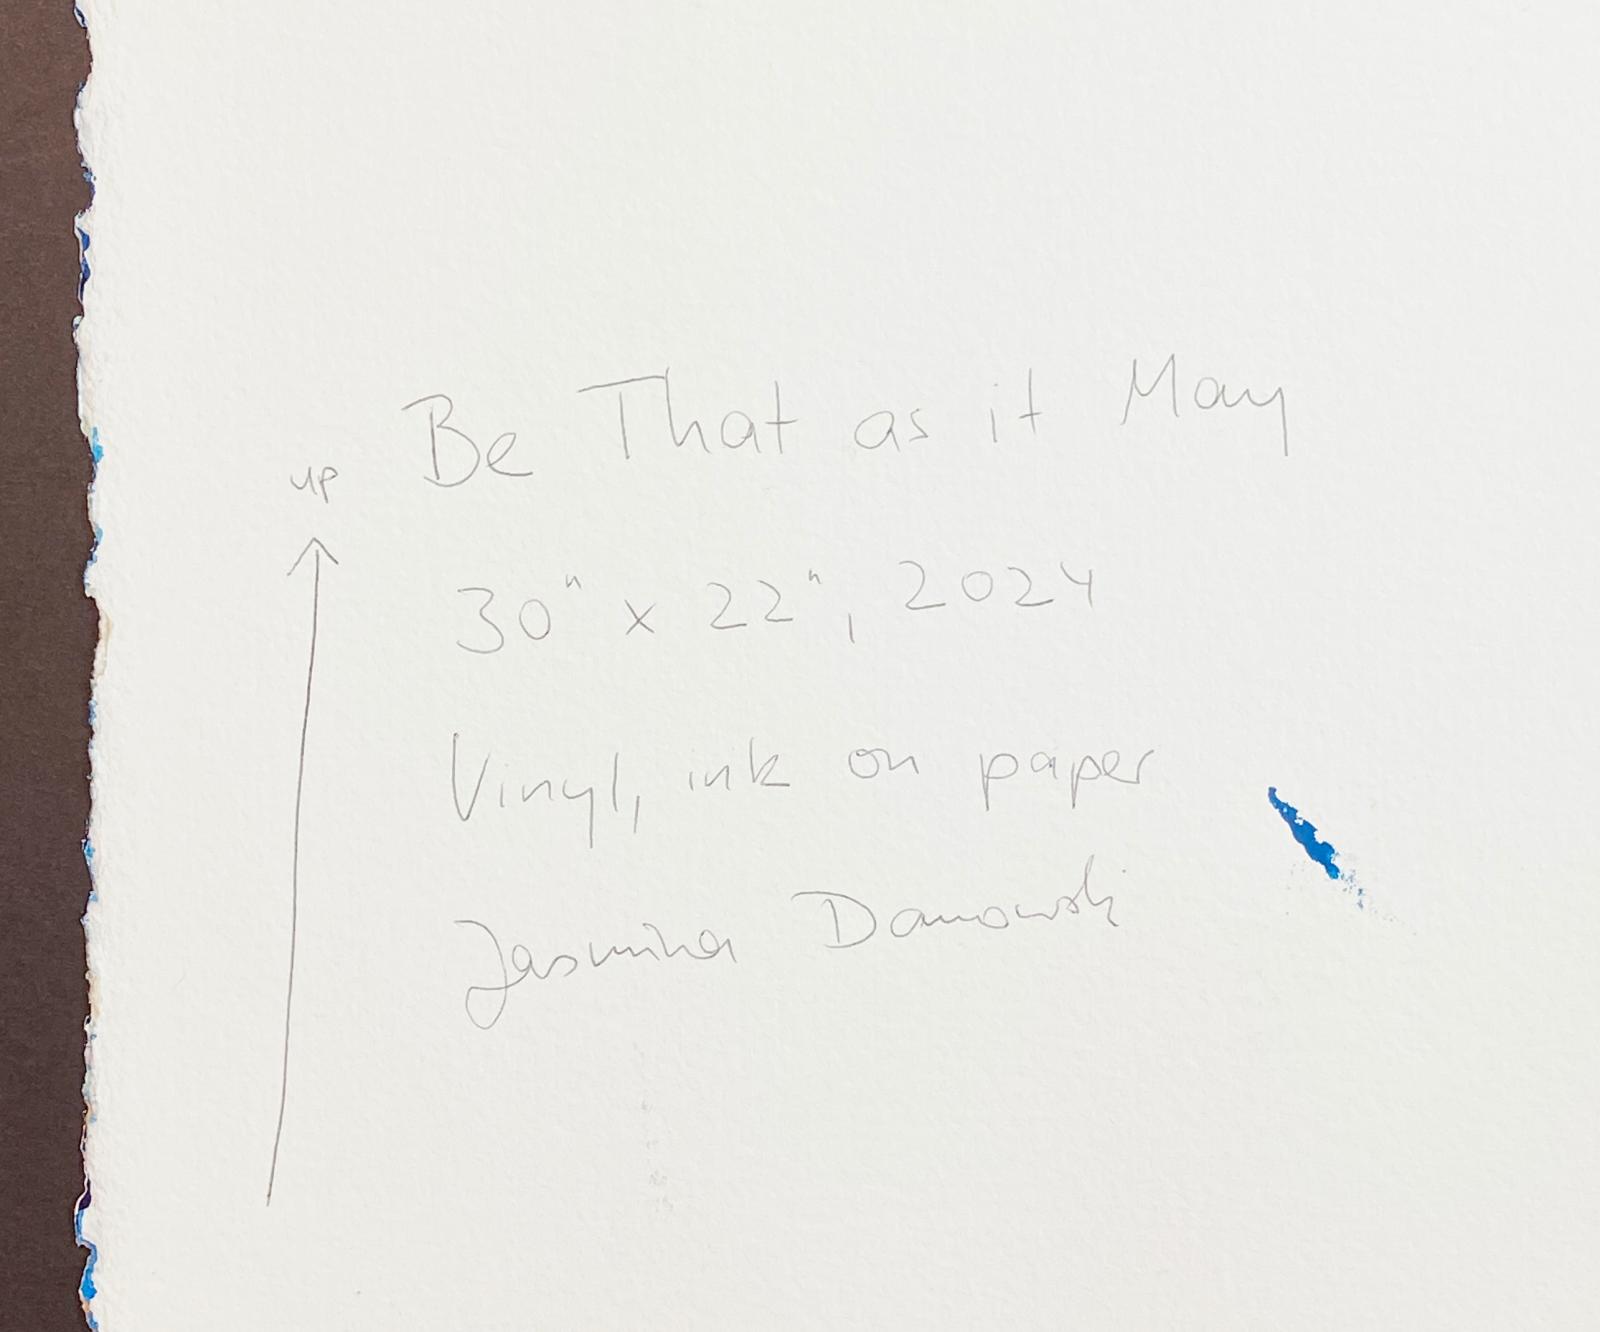 Be That as it May
up
30" x 22", 2024
Vinyl, ink on paper
Jasmina Danowski